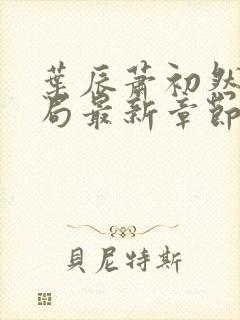 葉辰蕭初然
局最新章節
貝尼特斯